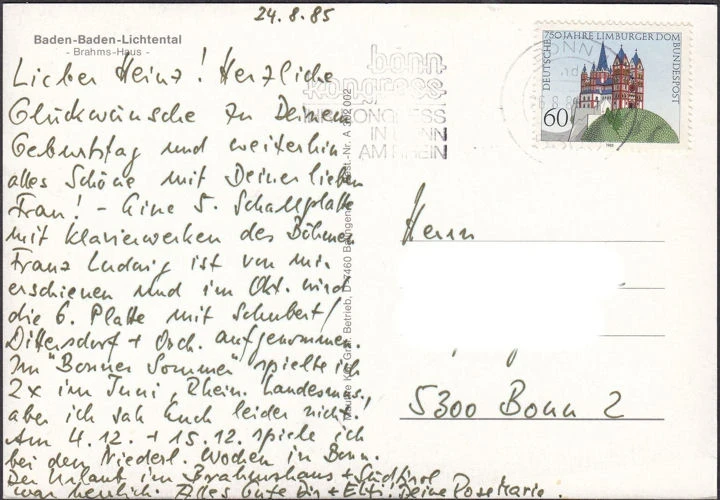 24.8.85
Baden-Baden-Lichtental
- Brahms-Haus -
Lieber Heinz! Herzliche
Glückwünsche zu Deinem
Geburtstag und weiterhin
alles Schöne mit Deiner lieben
Frau! - Eine 5. Schallplatte
mit Klavierwerken des Böhmen
Franz Ludwig ist von mir
erschienen und im Okt. wird
die 6. Platte mit Schubert/
Dittersdorf + Orch. aufgenommen.
Im "Bonner Sommer" spielte ich
2x im Juni, Rhein. Landesmus.,
aber ich sah Euch leider nicht!
Am 4.12. + 15.12. spiele ich
bei den Niederl. Wochen in Bonn.
Der Urlaub im Brahmshaus + Südtirol
war herrlich. Alles Gute Dir + Elfi! Deine Rosemarie.
bonn
kongress
KONGRESS
IN BONN
AM RHEIN
BONN
DEUTSCHE BUNDESPOST
750 JAHRE LIMBURGER DOM
60
1985
Betrieb, D-7460 Balingen
Best.-Nr. A
Herrn
5300 Bonn 2